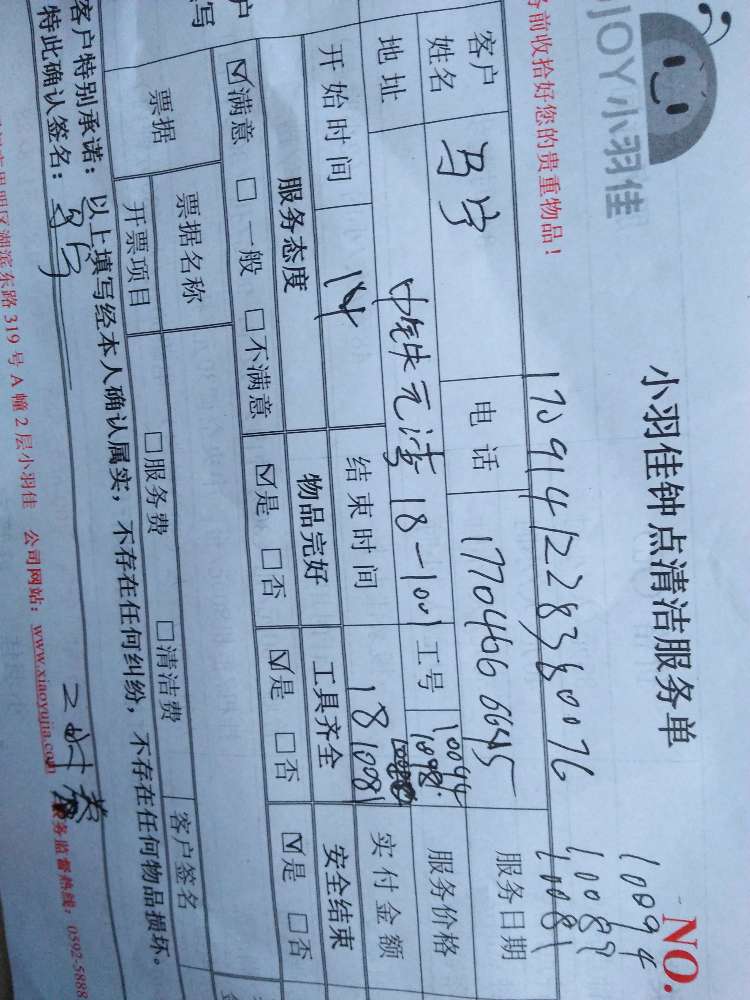 JOY小羽佳
小羽佳钟点清洁服务单
NO.
务前收拾好您的贵重物品！
1709141228380076
10094
10089
10081
客户姓名
电话
17704666645
服务日期
地址
中铁元湾18-1001
工号
10094
服务价格
开始时间
14
结束时间
18
10081
实付金额
服务态度
物品完好
工具齐全
安全结束
☑满意 □一般 □不满意
☑是 □否
☑是 □否
☑是 □否
户
写
票据
票据名称
开票项目
□服务费
□清洁费
客户签名
客户特别承诺：以上填写经本人确认属实，不存在任何纠纷，不存在任何物品损坏。
特此确认签名：
明区湖滨东路319号A幢2层小羽佳 公司网站：www.xiaoyujia.com 服务监督热线：0592-5888